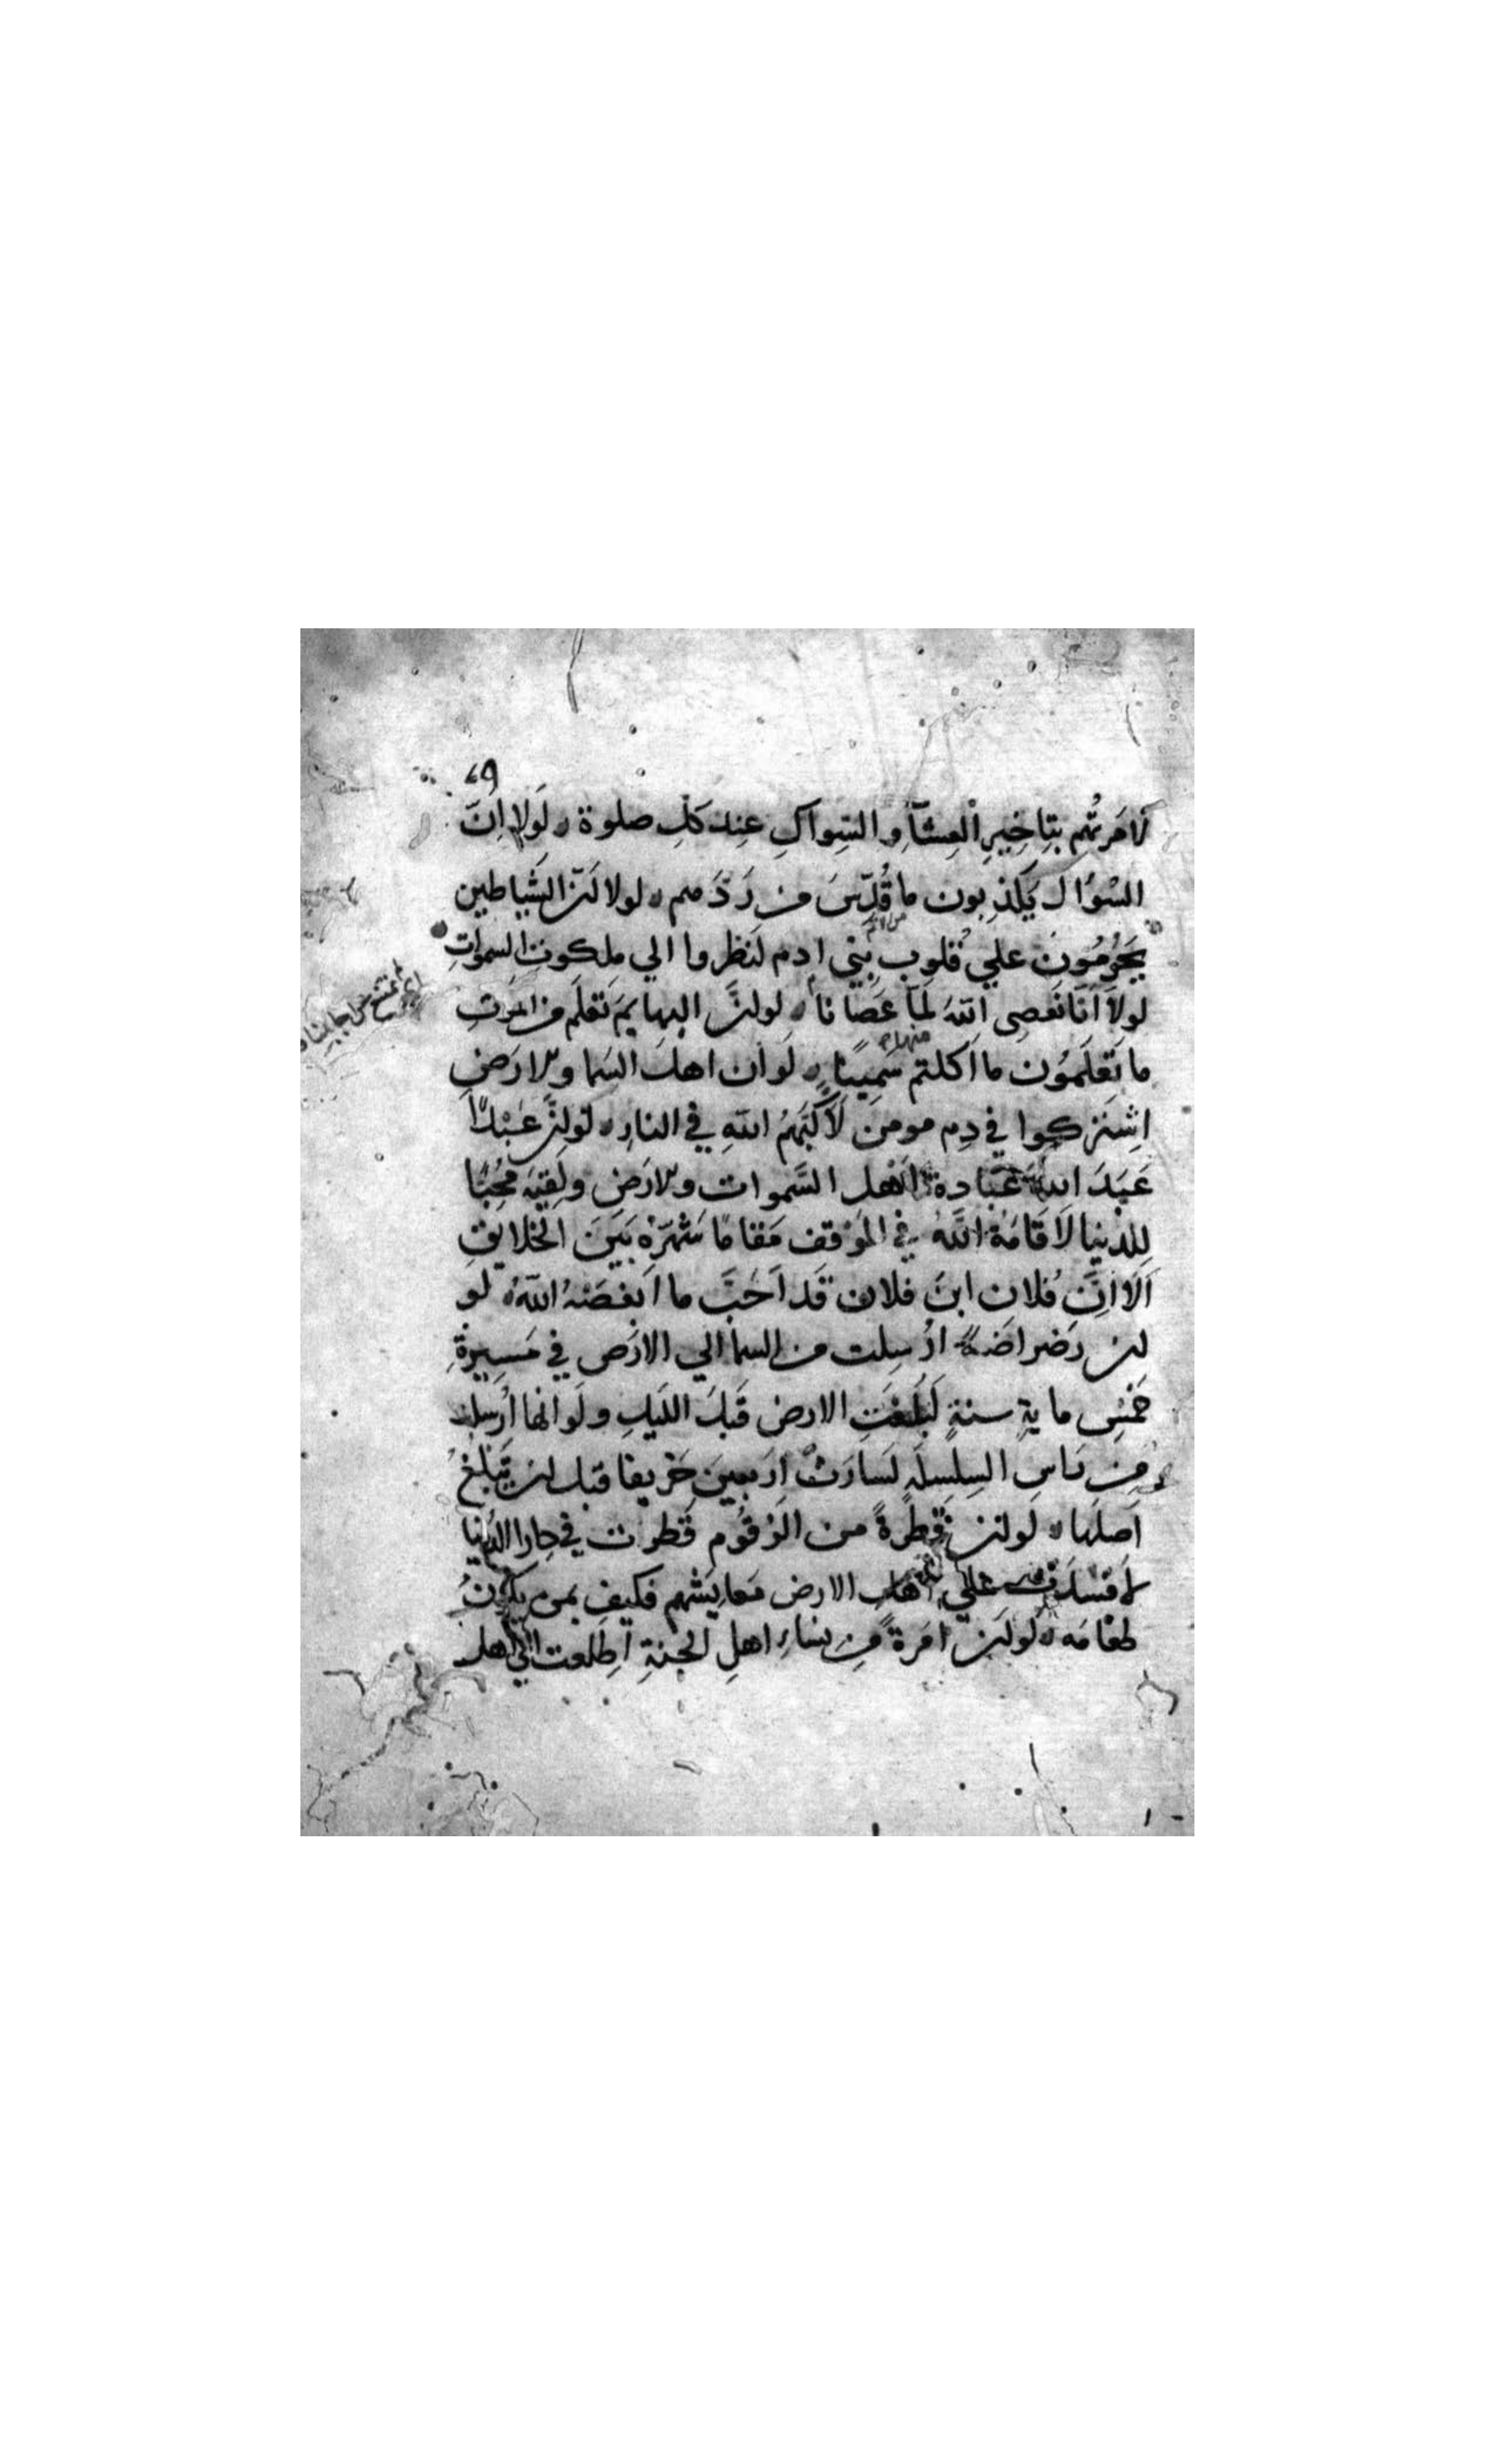 69
لَامَرتُهُم بِتَاخِيرِ الْعِشَآءِ والسِّواكِ عِندَ كلِّ صلوة ۵ لَولا انَّ
السُؤَّالَ يَكذِبون ما قُدِّسَ من رَدَّهم ۵ لولا انّ الشَياطين
يَحُومُونَ علي قلوب بَنِي ادم لنَظروا الي ملكوت السموات
لولا انّا نَعصِي اللّهَ لَما عَصَانا ۵ لو انَّ البهايِمَ تَعلَم من الموتِ
منها
ما تَعلَمُون ما اكلتم سَمِينًا ۵ لَو ان اهلَ السَما والارَضِ
اشتَركوا في دمِ مومن لَاَكبَّهمُ اللّهِ في النارِ ۵ لَو انَّ عَبْدًا
عَبَدَ اللّهَ عبَادةَ اَهْل السَّموات والارَضِ ولَقِيَه مُحِبًّا
لِلدُنيا لَاَقَامَهُ اللَّهُ في المَوْقف مَقامًا شَهَّرَهُ بَيَنَ الخلايِقِ
اَلَا اِنَّ فُلان ابنَ فلان قَد اَحَبَّ ما اَبغضَهُ اللّهُ ۵ لو
ان رَضراضَةً ارُسِلت من السما الي الارَض في مَسِيرةِ
خَمْسِ مايةِ سنةٍ لَبَلَغَتِ الارض قَبلَ اللّيلِ ولَو انها أُرسِلت
مِن راسِ السِلسِلَةِ لَسارَتْ اربعينَ خَريفا قبل ان تَبلغَ
اَصلَها ۵ لَو انّ قَطرةً من الزَقُوم قَطرت في دار الدُنيا
لاَفسَدَت علي اهلِ الارض مَعايِشَهم فكيف بمن يكونُ
طعَامَه ۵ لَو انَّ امَرةً مِن نساءِ اهلِ الجنةِ اطّلعت الي اهل